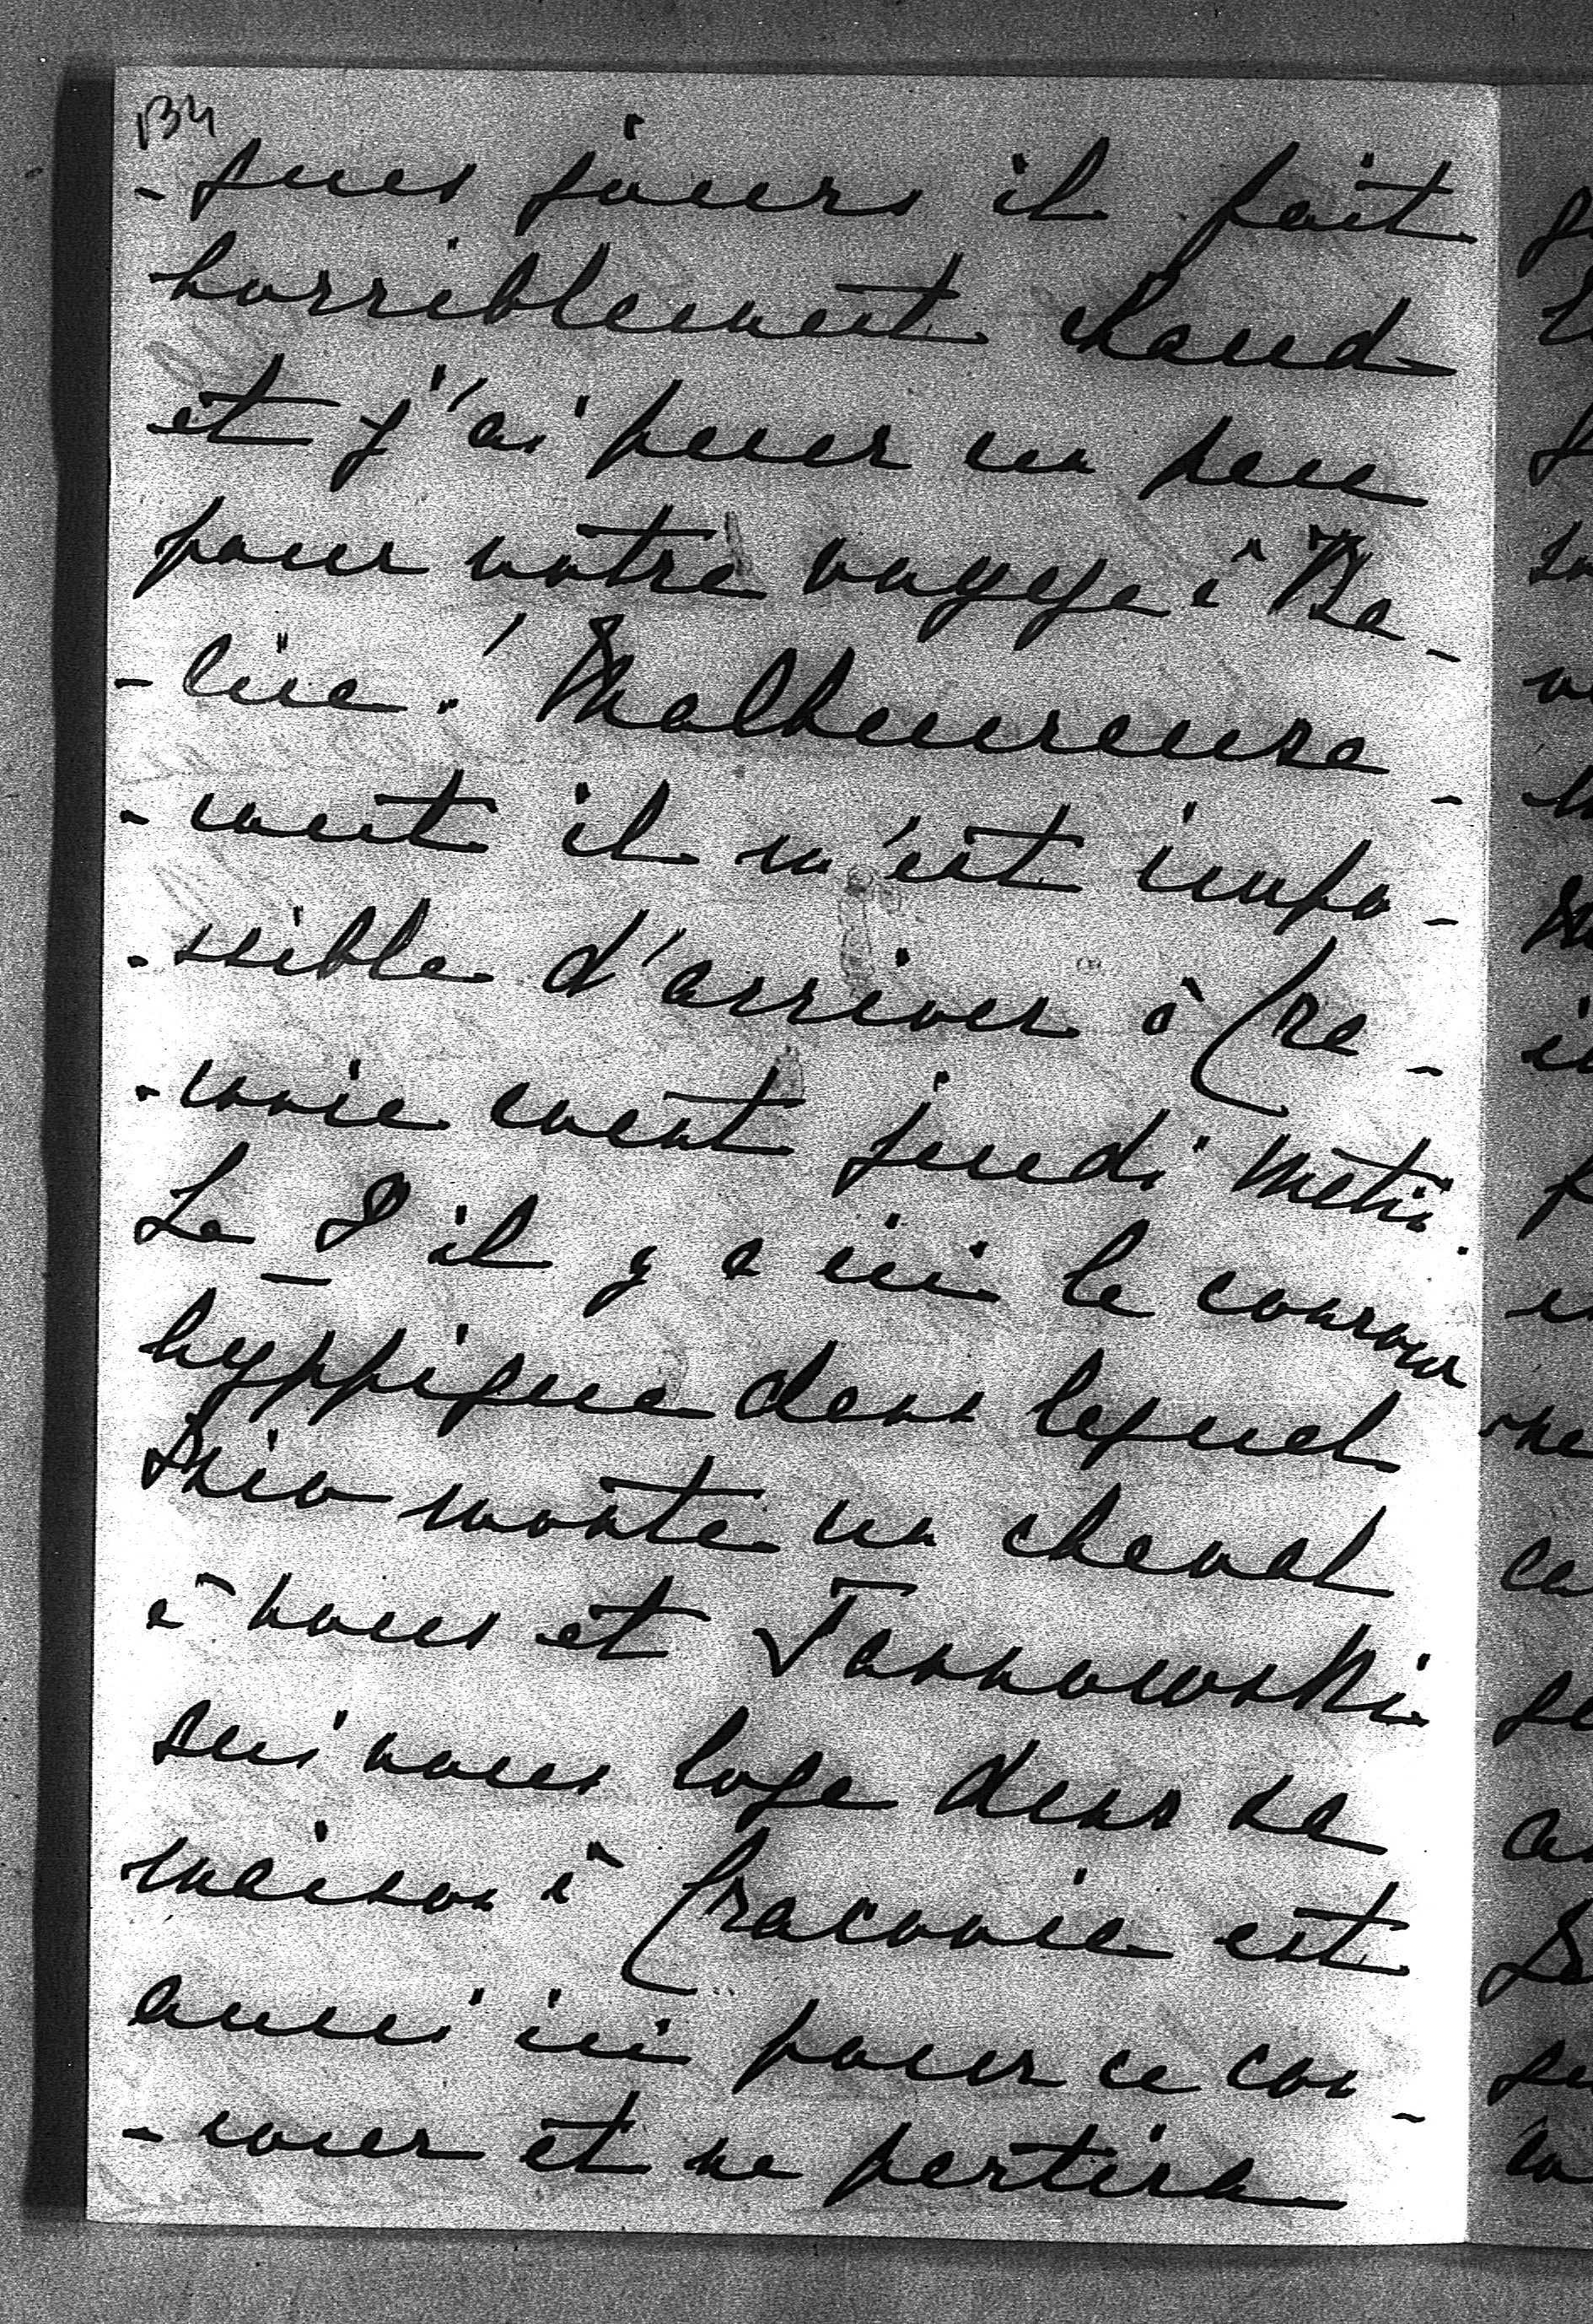 134
-ques jours il fait
horriblement chaud
et j'ai peur un peu
pour votre voyage à Ba-
-lice. Malheureuse-
-ment il m'est impo-
-ssible d'arriver à Cra-
-covie avant jeudi matin.
Le 8 il y a ici le concour
hyppique dans lequel
monte un cheval
à nous et Tarnowski
qui nous loge dans sa
maison à Cracovie est
aussi ici pour ce con-
-cour et ne partira